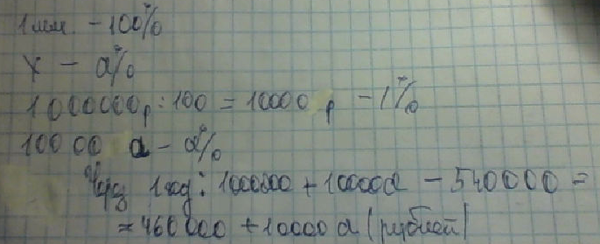 1 млн. - 100%
х - а%
1000000р : 100 = 10000 р - 1%
10000 а - а%
Через 1 год: 1000000 + 10000а - 540000 =
= 460000 + 10000 а (рублей)